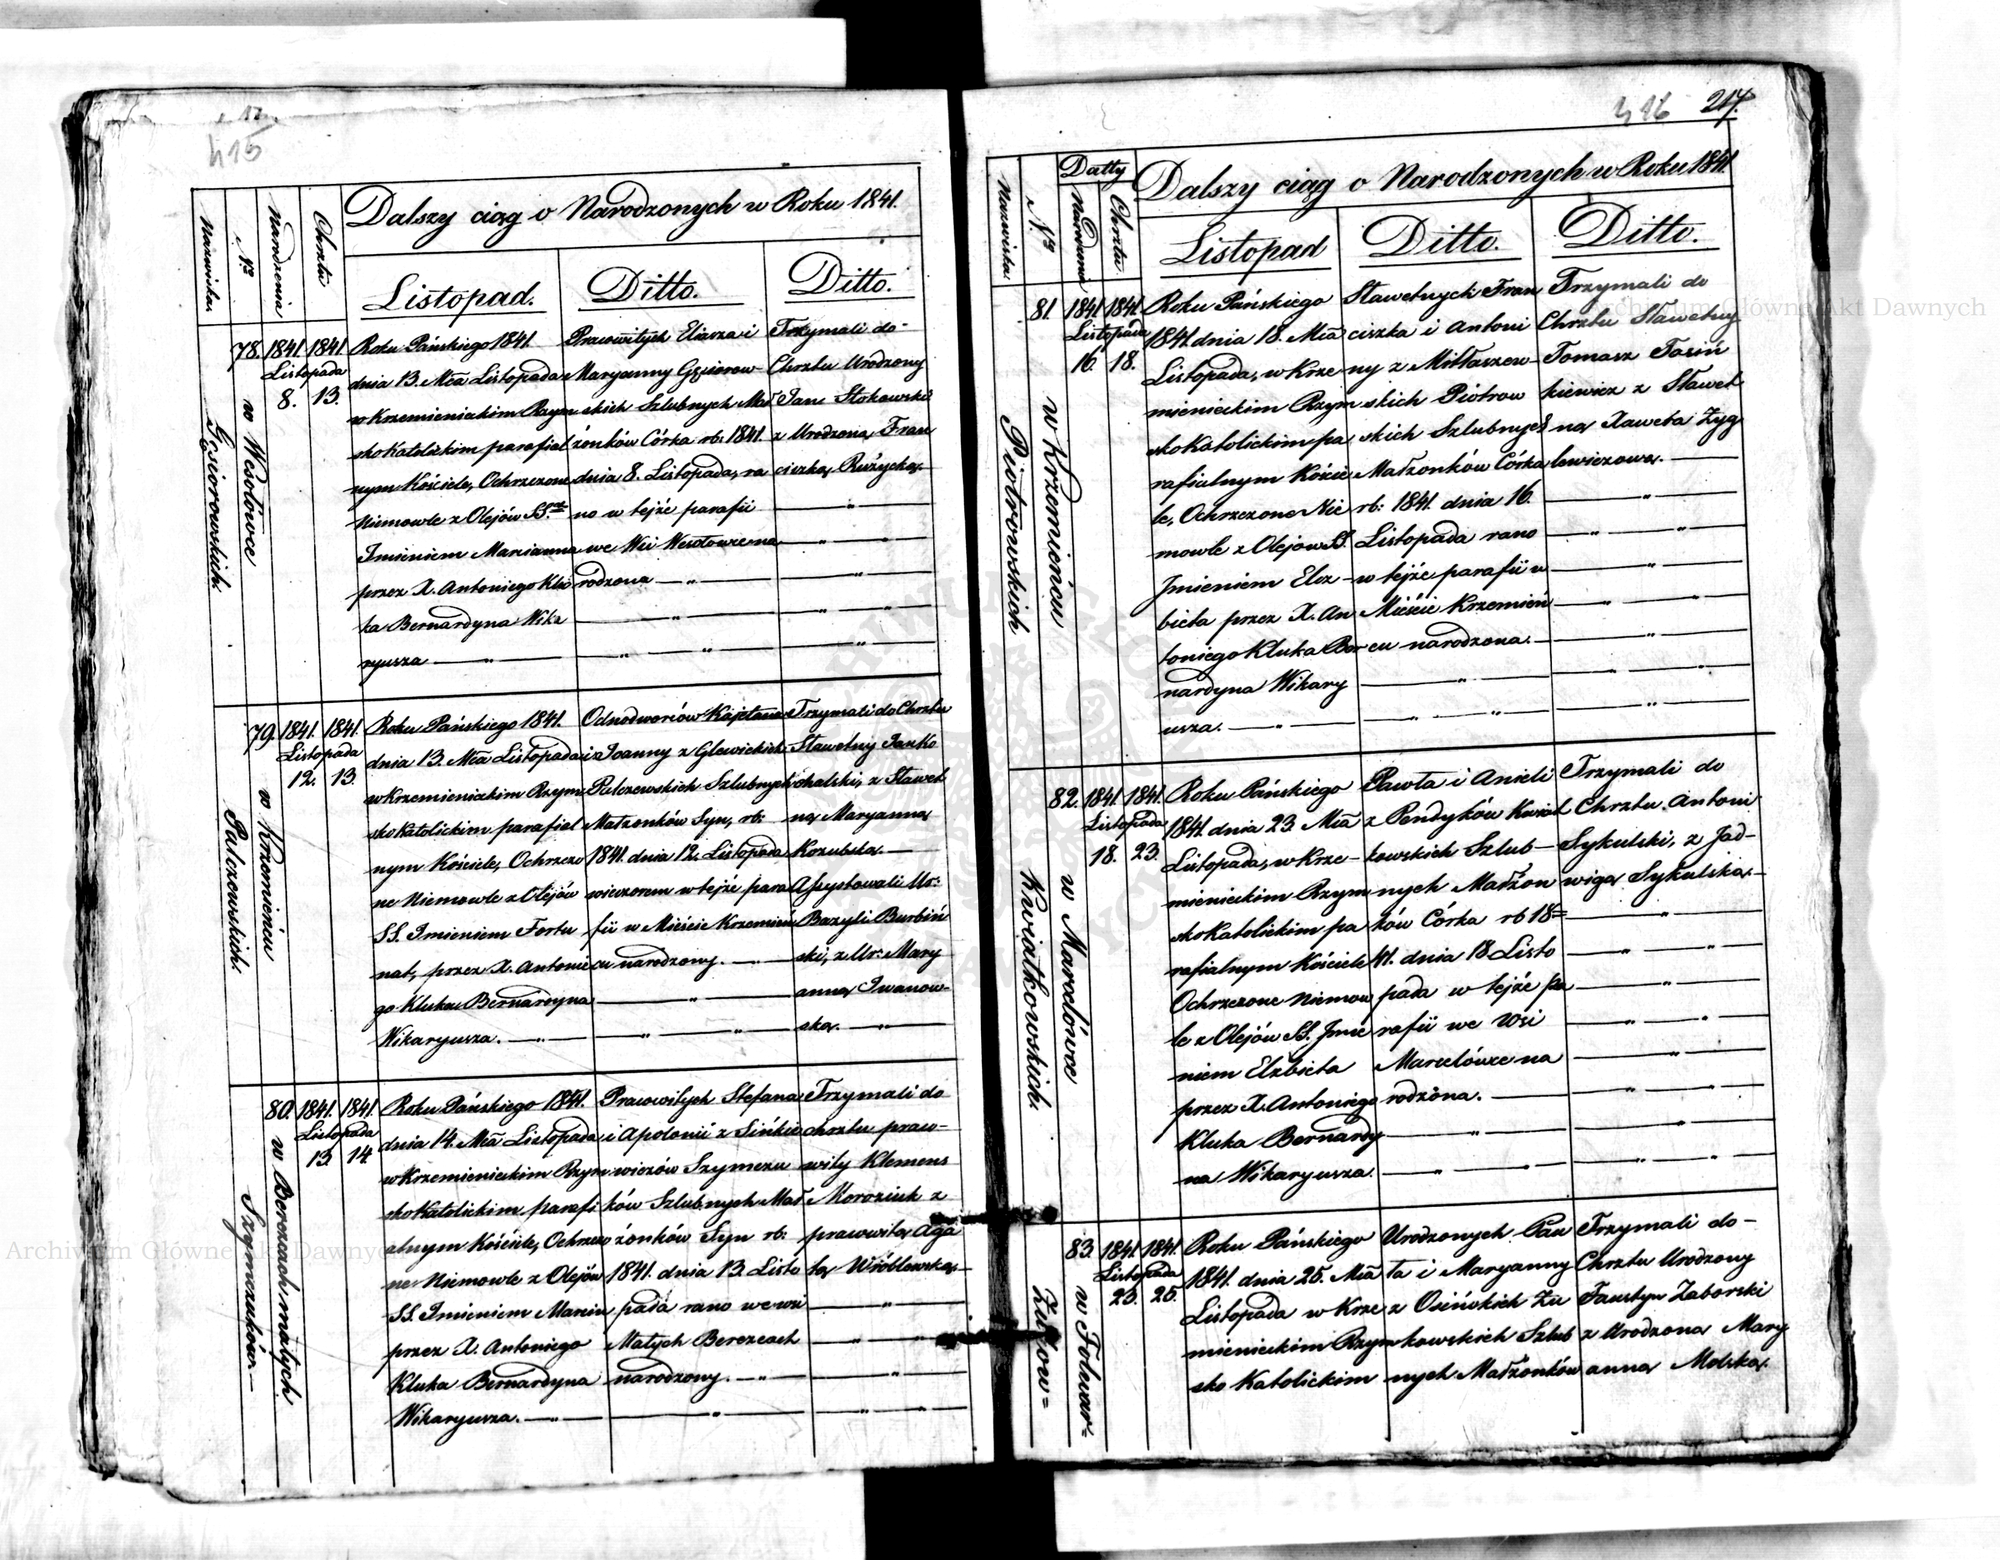 415
Dalszy ciąg o Narodzonych w Roku 1841.
Nazwiska
Nro
Narodzenia
Chrztu
Listopad.
Ditto.
Ditto.
78.
1841. 1841.
Listopada
8. 13.
w Wesołówce
Gęsiorowskich.
Roku Pańskiego 1841.
dnia 13. Mca Listopada
w Krzemienieckim Rzym
sko Katolickim parafial
nym Kościele, Ochrzczone
Niemowle z Olejów SS.
Imieniem Marianna
przez X. Antoniego Klu
ka Bernardyna Wika
ryusza
Pracowitych Eliasza i
Maryanny Gęsiorow-
skich Szlubnych Mał
żonków Córka rb: 1841.
dnia 8. Listopada, ra
no w tejże parafii
we Wsi Wesołowce na
rodzona
Trzymali do-
Chrztu Urodzony
Jan Stokowski
z Urodzoną Fran
ciszką Różycką.
79.
1841. 1841.
Listopada
12. 13.
w Krzemieńcu
Palczewskich.
Roku Pańskiego 1841.
dnia 13. Mca Listopada
w Krzemienieckim Rzym
sko Katolickim parafial
nym Kościele, Ochrzczo
ne Niemowle z Olejów
SS. Imieniem Fortu
nat, przez X. Antonie
go Kluka Bernardyna
Wikaryusza.
Odnodworców Kajetana
i Joanny z Glewickich
Palczewskich Szlubnych
Małżonków Syn, rb:
1841. dnia 12. Listopada
wieczorem w tejże para
fii w Mieście Krzemien
cu narodzony.
Trzymali do Chrztu
Sławetny Janko
chalski, z Sławet
ną Maryanną
Kozubską.
Assystowali Ur:
Bazyli Burbiń
ski, z Ur: Mary
anną Iwanow-
ską.
80.
1841. 1841.
Listopada
13. 14.
w Berezcach małych.
Szymczuków.
Roku Pańskiego 1841.
dnia 14. Mca Listopada
w Krzemienieckim Rzym
sko Katolickim parafi
alnym Kościele, Ochrzczo
ne Niemowle z Olejów
SS. Imieniem Marcin
przez X. Antoniego
Kluka Bernardyna
Wikaryusza.
Pracowitych Stefana
i Apolonii z Sińkie
wiczów Szymczu
ków Szlubnych Mał
żonków Syn rb:
1841. dnia 13. Listo
pada rano we wsi
Małych Berezcach
narodzony.
Trzymali do
chrztu praco-
wity Klemens
Moroziuk z
pracowitą Aga
tą Wróblewską.
416 217.
Dalszy ciąg o Narodzonych w Roku 1841.
Nazwiska
Nro
Datty
Narodzenia
Chrztu
Listopad
Ditto.
Ditto.
81.
1841. 1841.
Listopada
16. 18.
w Krzemieńcu
Piotrowskich
Roku Pańskiego
1841. dnia 18. Mca
Listopada, w Krze
mienieckim Rzym
sko Katolickim pa
rafialnym Koście
le, Ochrzczone Nie
mowle z Olejow SS.
Imieniem Elż-
bieta przez X. An
toniego Kluka Ber
nardyna Wikary
usza.
Sławetnych Fran
ciszka i Antoni
ny z Miłaszew-
skich Piotrow
skich Szlubnych
Małżonków Córka
rb: 1841. dnia 16.
Listopada rano
w tejże parafii w
Mieście Krzemień
cu narodzona.
Trzymali do
Chrztu Sławetny
Tomasz Jasiń
kiewicz z Sławet
ną Xawerą Zyg
lewiczową.
82.
1841. 1841.
Listopada
18. 23.
w Marcelówce
Kwiatkowskich.
Roku Pańskiego
1841. dnia 23. Mca
Listopada, w Krze-
mienieckim Rzym
sko Katolickim pa
rafialnym Kościele
Ochrzczone Niemow
le z Olejów SS. Imie
niem Elżbieta
przez X. Antoniego
Kluka Bernardy
na Wikaryusza.
Pawła i Anieli
z Pendyków Kwiat
kowskich Szlub-
nych Małżon
ków Córka rb 18=
41. dnia 18. Listo
pada w tejże pa
rafii we Wsi
Marcelówce na
rodzona.
Trzymali do
Chrztu Antoni
Sykulski, z Jad-
wigą Sykulską.
83.
1841. 1841.
Listopada
23. 25.
w Folwar=
Żukow=
Roku Pańskiego
1841. dnia 25. Mca
Listopada w Krze
mienieckim Rzym
sko Katolickim
Urodzonych Paw
ła i Maryanny
z Osińskich Żu
kowskich Szlub
nych Małżonków
Trzymali do-
Chrztu Urodzony
Faustyn Zaborski
z Urodzoną Mary
anną Molską.
Archiwum Główne Akt Dawnych
Archiwum Główne Akt Dawnych